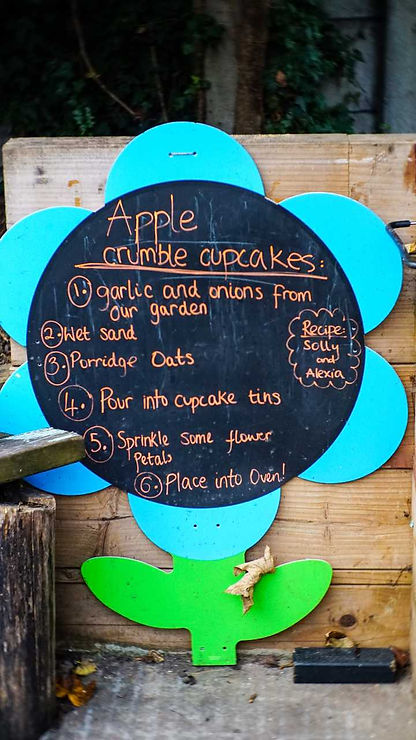 Apple
crumble cupcakes:
1. garlic and onions from
our garden
2. Wet sand
3. Porridge Oats
4. Pour into cupcake tins
5. Sprinkle some flower
Petals
6. Place into Oven!
Recipe:
Solly
and
Alexia